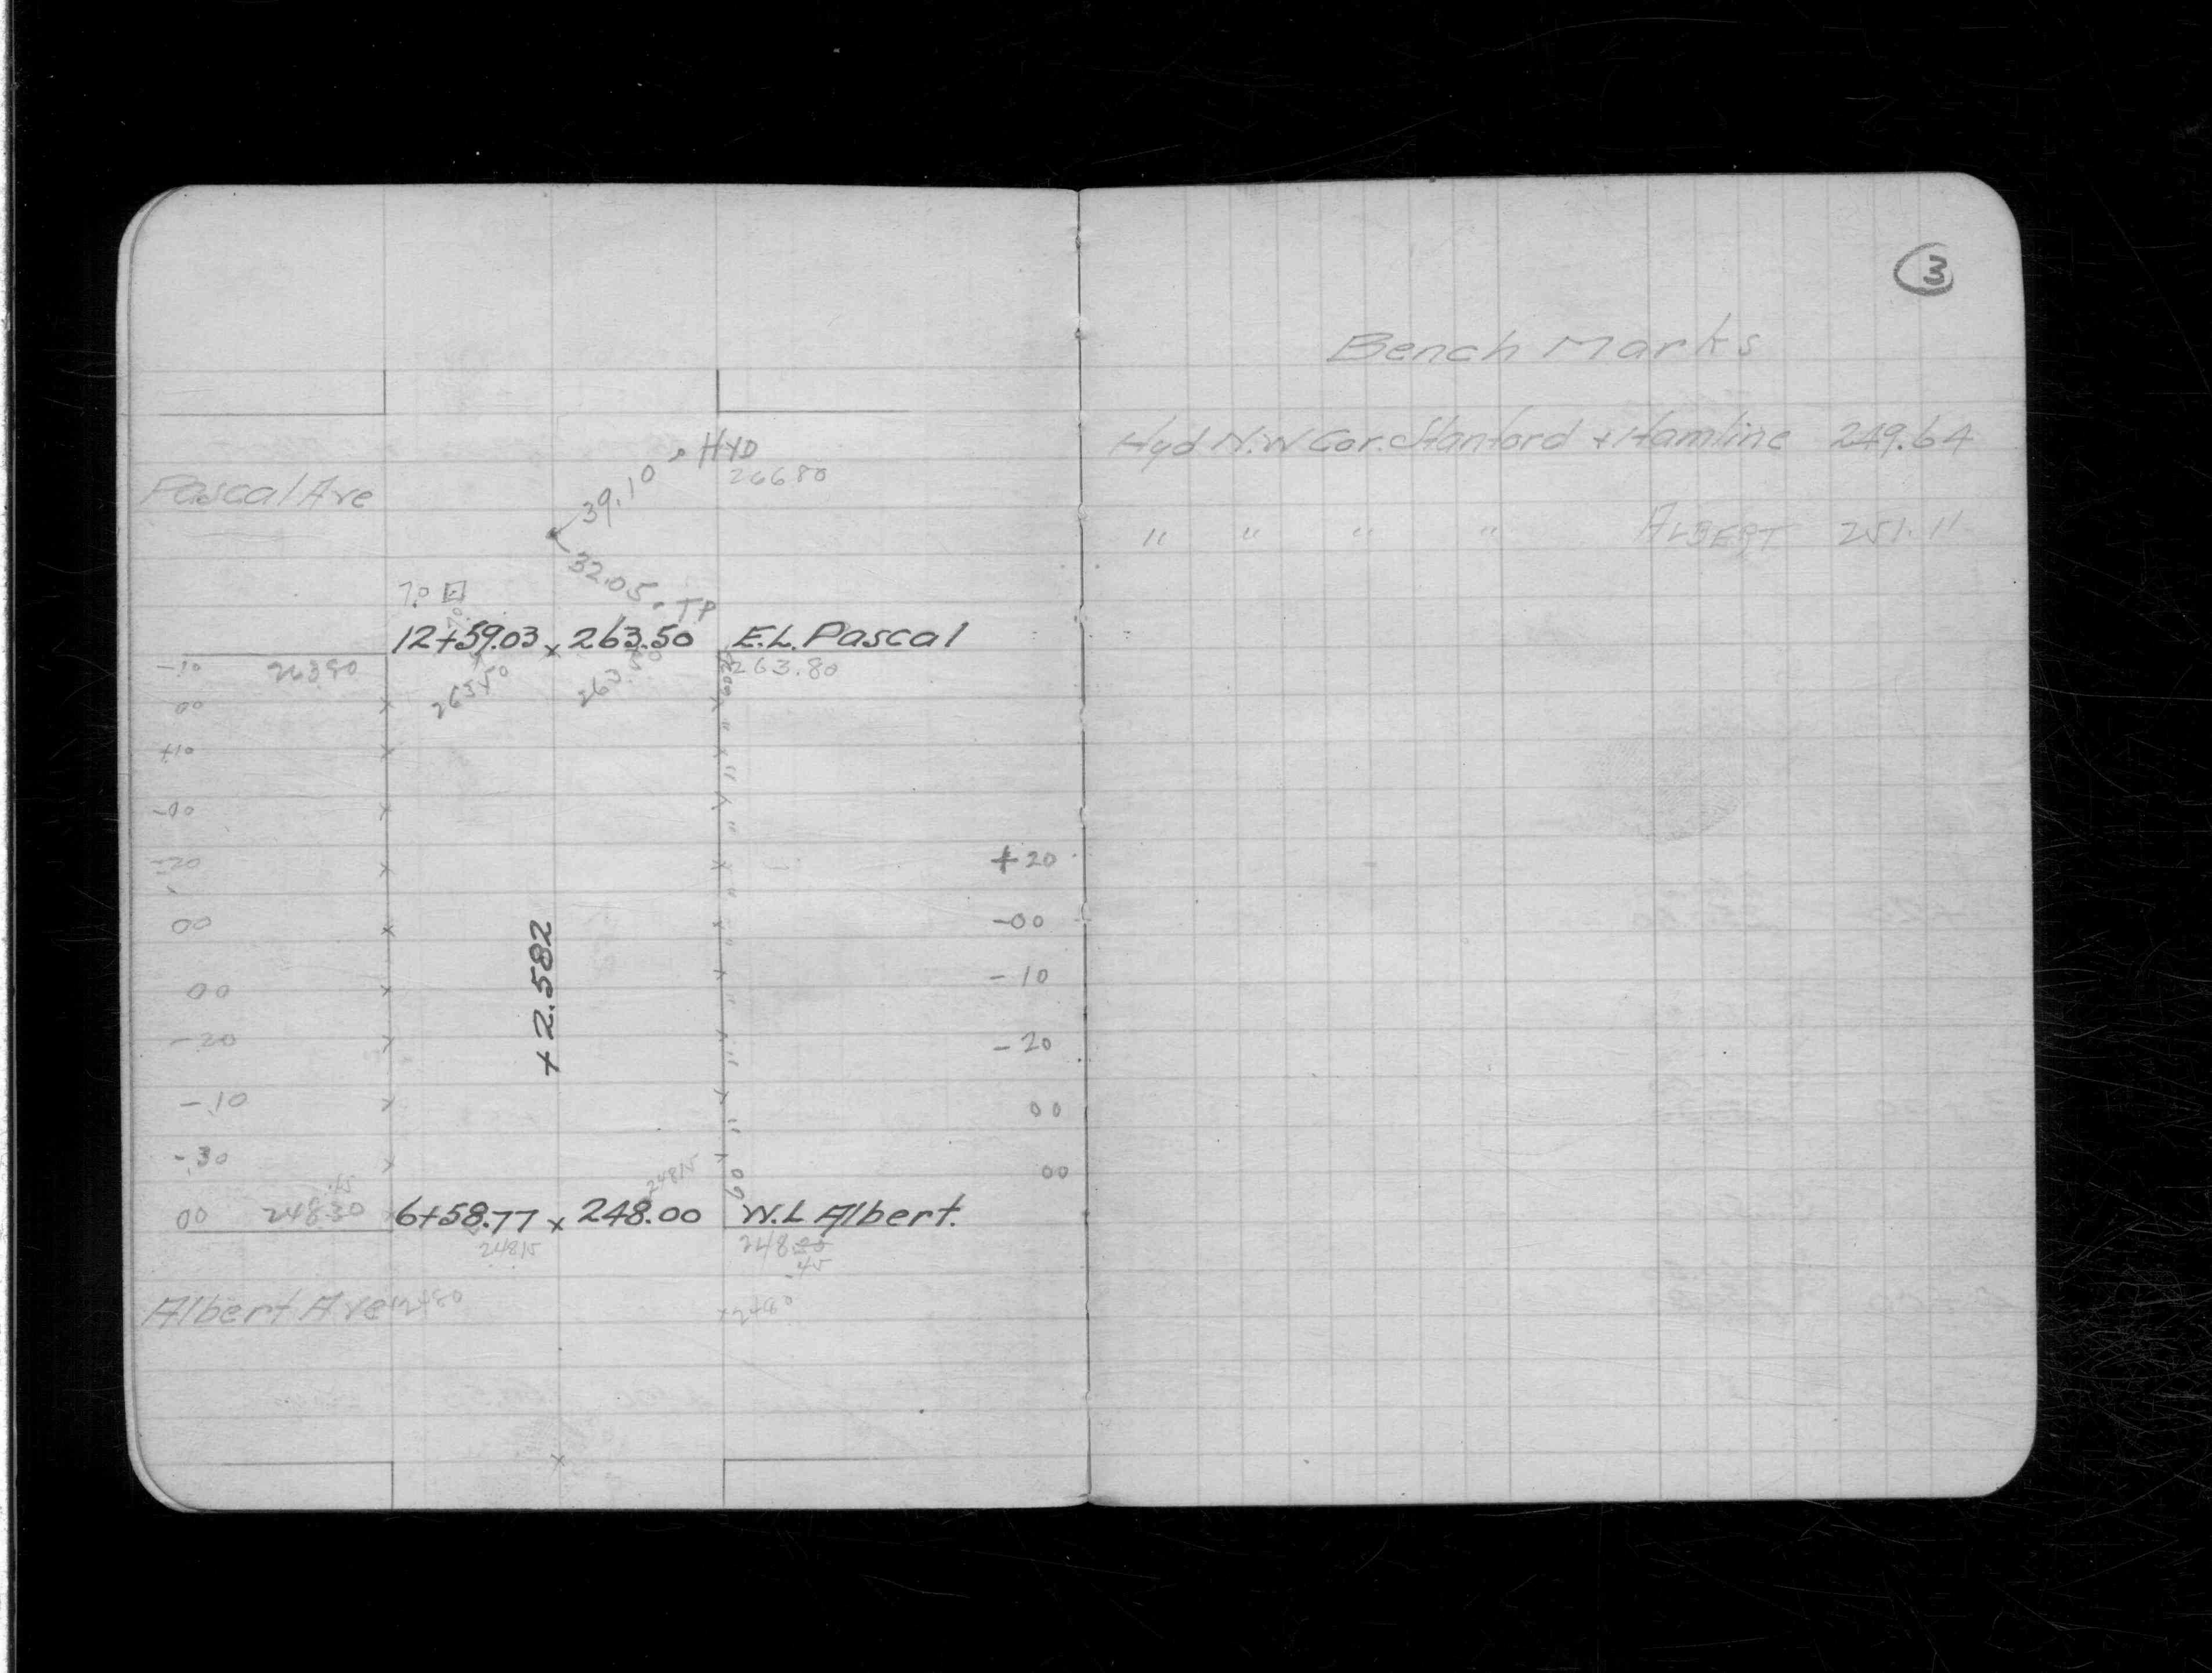 HYD
266.80
39.10
Pascal Ave
32.05
TP
7.0
12+59.03 x 263.50 E.L. Pascal
-10 263.80 263.80
263.50
00
+10
-00
-20
+20
00
-00
00
-10
+2.582
-20
-20
-.10
00
-.30
00
.45
24815
00 248.30 6+58.77 x 248.00 W.L Albert.
24815
.45
Albert Ave
3
Bench Marks
Hyd N.W Cor. Stanford + Hamline 249.64
" " " " ALBERT 251.11